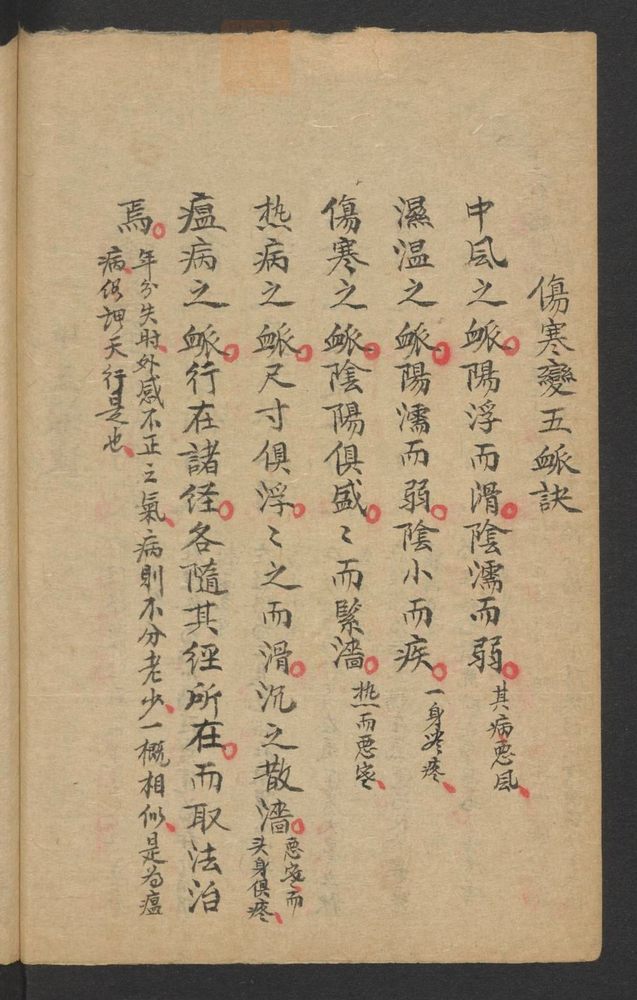 傷寒變五衇訣
中风之衇陽浮而滑陰濡而弱其病恶风
濕温之衇陽濡而弱陰小而疾一身尽疼
傷寒之衇陰陽俱盛〻而緊濇热而恶寒
热病之衇尺寸俱浮〻之而滑沉之散濇恶寒而
头身俱疼
瘟病之衇行在諸经各隨其经所在而取法治
焉年分失时外感不正之氣病則不分老少一概相似是为瘟
病俗呼天行是也